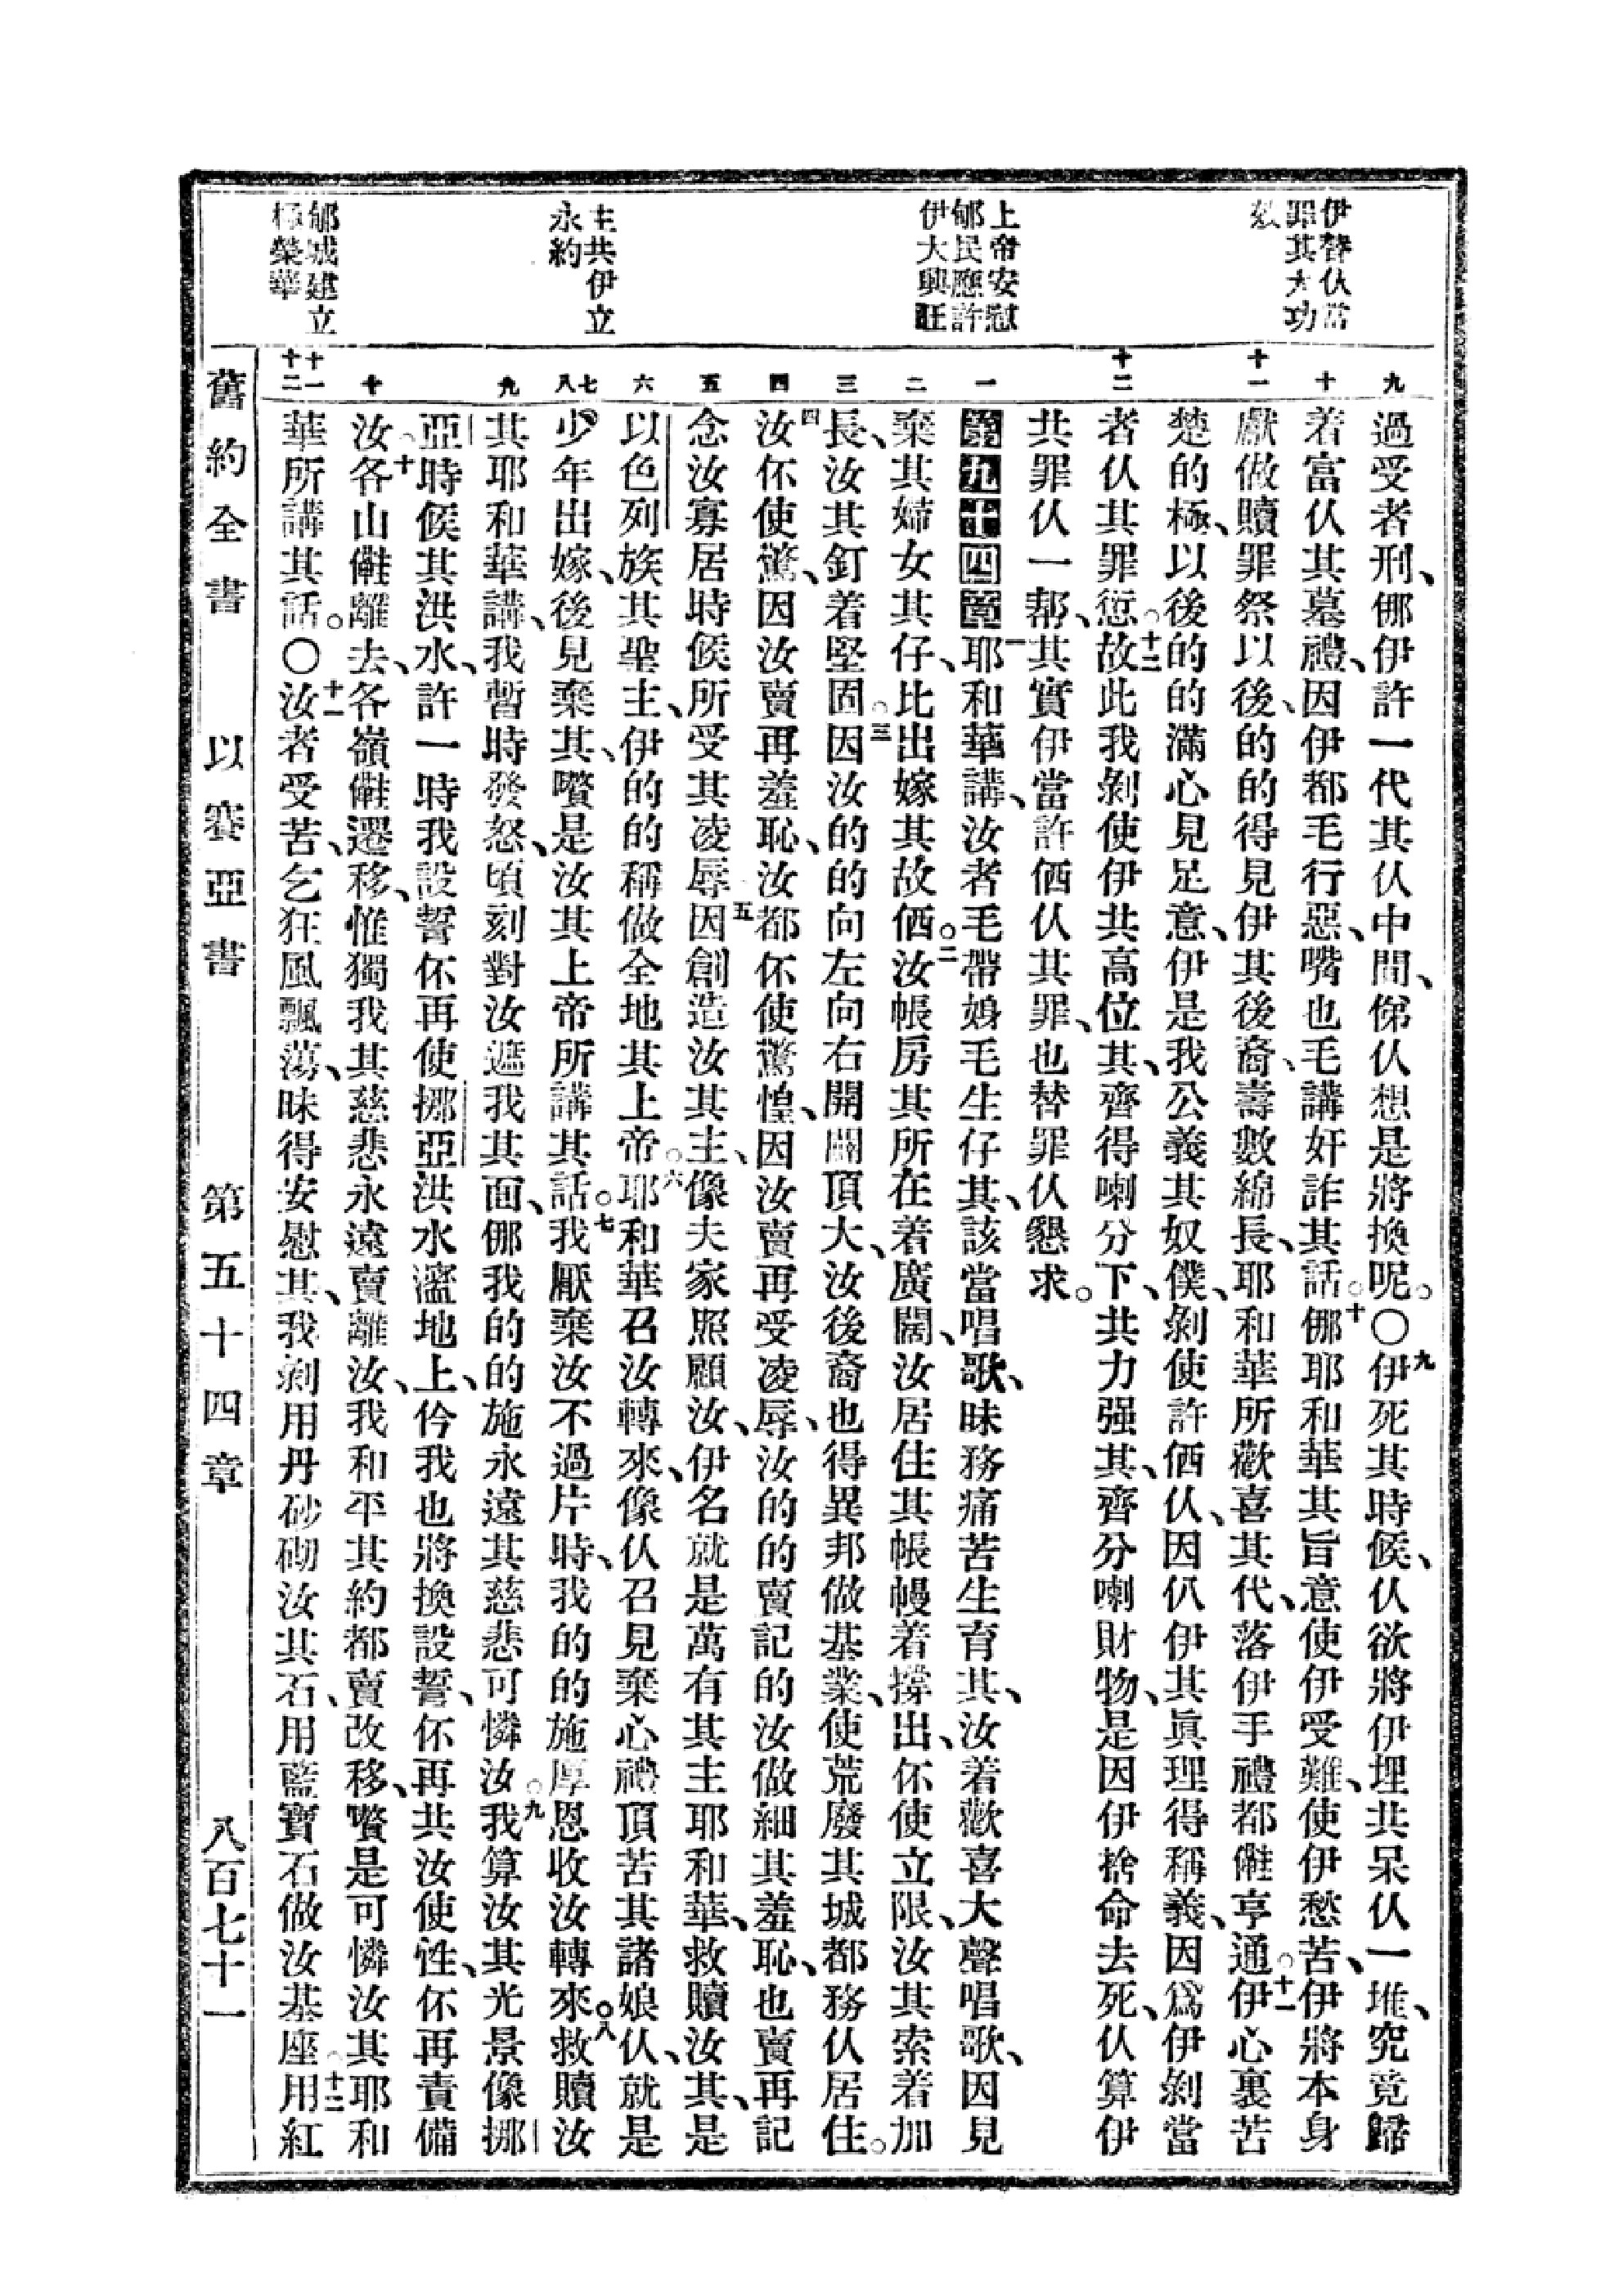 伊替仏當
罪其大功
效
上帝安慰
郇民應許
伊大興旺
主共伊立
永約
郇城建立
極榮華
九
十
十一
十二
一
二
三
四
五
六
七
八
九
十
十一
十二
過受者刑、㑚伊許一代其仏中間、俤仏想是將換呢。〇九伊死其時候、仏欲將伊埋共呆仏一堆、究竟歸
着富仏其墓禮、因伊都毛行惡、嘴也毛講奸詐其話。十㑚耶和華其旨意使伊受難、使伊愁苦、伊將本身
獻做贖罪祭以後、的的得見伊其後裔、壽數綿長、耶和華所歡喜其代、落伊手禮都㑽亨通。十一伊心裏苦
楚的極、以後的的滿心見足意、伊是我公義其奴僕、剝使許価仏、因仈伊其眞理得稱義、因爲伊剝當
者仏其罪愆。十二故此我剝使伊共高位其、齊得喇分下、共力强其、齊分喇財物、是因伊捨命去死、仏算伊
共罪仏一幫、其實伊當許価仏其罪、也替罪仏懇求。
第五十四章一耶和華講、汝者毛帶㛛毛生仔其、該當唱歌、昧務痛苦生育其、汝着歡喜大聲唱歌、因見
棄其婦女其仔、比出嫁其故価。二汝帳房其所在着廣闊、汝居住其帳幔着撐出、伓使立限、汝其索着加
長、汝其釘着堅固。三因汝的的向左向右開闢頂大、汝後裔也得異邦做基業、使荒廢其城都務仏居住。
四汝伓使驚、因汝賣再羞恥、汝都伓使驚惶、因汝賣再受凌辱、汝的的賣記的汝做細其羞恥、也賣再記
念汝寡居時候、所受其凌辱。五因創造汝其主、像夫家照顧汝、伊名就是萬有其主耶和華、救贖汝其、是
以色列族其聖主、伊的的稱做全地其上帝。六耶和華召汝轉來、像仏召見棄心禮頂苦其諸娘仏、就是
少年出嫁、後見棄其、嚽是汝其上帝所講其話。七我厭棄汝不過片時、我的的施厚恩收汝轉來。八救贖汝
其耶和華講、我暫時發怒、頃刻對汝遮我其面、㑚我的的施永遠其慈悲可憐汝。九我算汝其光景像挪
亞時候其洪水、許一時我設誓伓再使挪亞洪水濫地上、仱我也將換設誓、伓再共汝使性、伓再責備
汝。十各山㑽離去、各嶺㑽遷移、惟獨我其慈悲永遠賣離汝、我和平其約都賣改移、嚽是可憐汝其耶和
華所講其話。〇十一汝者受苦、乞狂風飄蕩、昧得安慰其、我剝用丹砂砌汝其石、用藍寶石做汝基座。十二用紅
舊約全書 以賽亞書 第五十四章 八百七十一